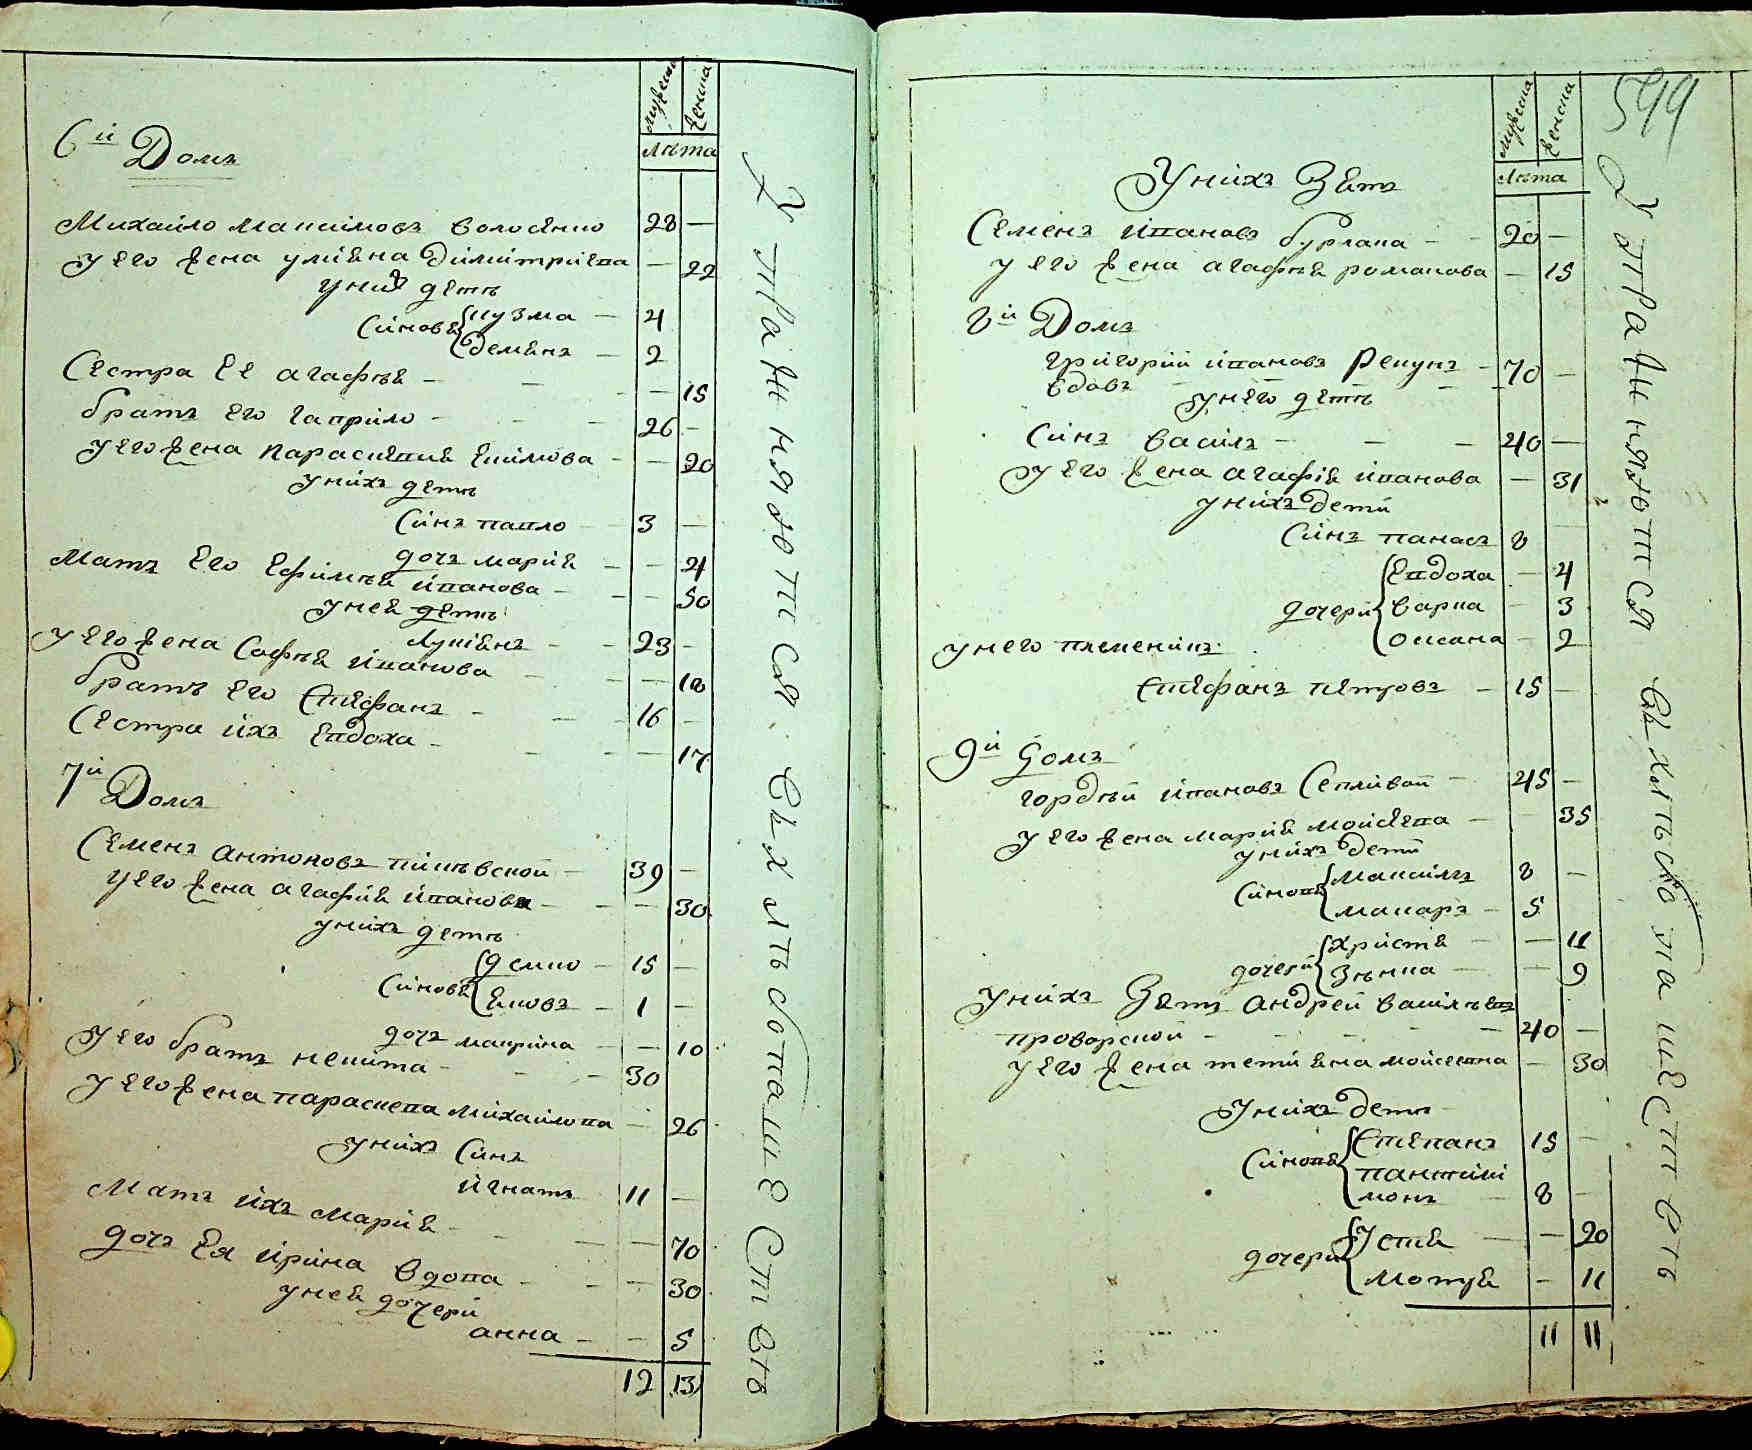 мужеска женска
лѣта
6й Домъ
Михайло максимовъ волосянко 28 —
у его жена улияна димитриева — 22
у них детъ
синовя кузма — 4
демянъ — 2
Сестра Ее агафѣя — — — 15
братъ Его гаврило — — — 26 —
у его жена параскевия Екимова — — 20
у нихъ детъ
синъ павло — 3 —
дочъ мария — — 4
Матъ Его Ефимѣя иванова — — — 50
у нея детъ
Лукиянъ — — 23 —
у его жена Софѣя иванова — — — 18
братъ его Стефанъ — — — 16 —
Сестра ихъ Евдоха — — — — 17
7й Домъ
Семенъ антоновъ — 39 —
у его жена агафия иванова — — — 30
у нихъ детъ
синовя демко — 15 —
Яковъ — 1 —
дочъ макрина — — 10
у его братъ никита — — — 30
у его жена параскева михайлова — 26
у нихъ синъ
игнатъ 11 —
Матъ ихъ мария — — — — 70
дочъ Ея ирина вдова — — — 30
у нея дочери
анна — — 5
12 13
У тражняются Въ хлѣбопашествѣ
599
мужеска женска
лѣта
У нихъ Зятъ
Семенъ ивановъ бурлака — — 20 —
у его жена агафѣя романова — 15
8й Домъ
григорий ивановъ Рекунъ — 70 —
вдовъ
у него детъ
синъ василъ — — — 40 —
у его жена агафия иванова — 31
у нихъ дети
синъ панасъ 8
дочери Евдоха — 4
варка — 3
оксана — 2
у него племеникъ
Стефанъ петровъ — 15 —
9й домъ
гордѣй ивановъ Сепливой — 45 —
у его жена мария моисѣева — 35
у нихъ дети
синовя максимъ 8 —
макаръ — 5
дочери христя — — 11
Зѣнка — — 9
У нихъ Зятъ андрей василѣевъ
проворской — — — — — 40 —
у его жена тетияна моисеевна — 30
у нихъ детъ
синовя Степанъ 15 —
пантили
монъ — 8 —
дочери Устя — — 20
мотря — 11
11 11
Утражняются Въ хлѣбопашествѣ